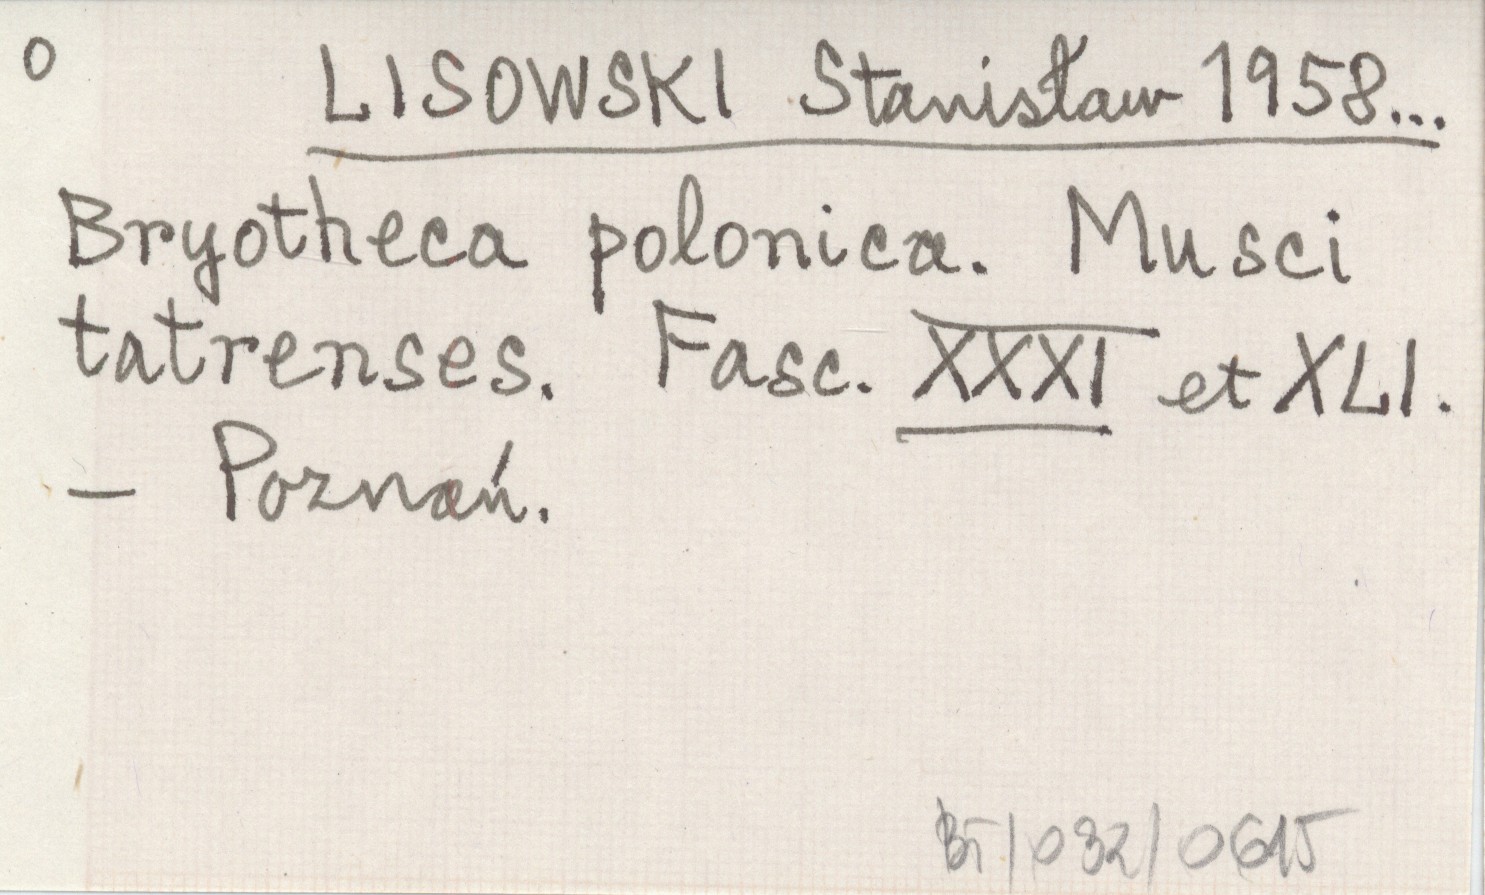 o
LISOWSKI Stanisław 1958...
Bryotheca polonica. Musci
tatrenses. Fasc. XXXI et XLI.
- Poznań.
BT/032/0615